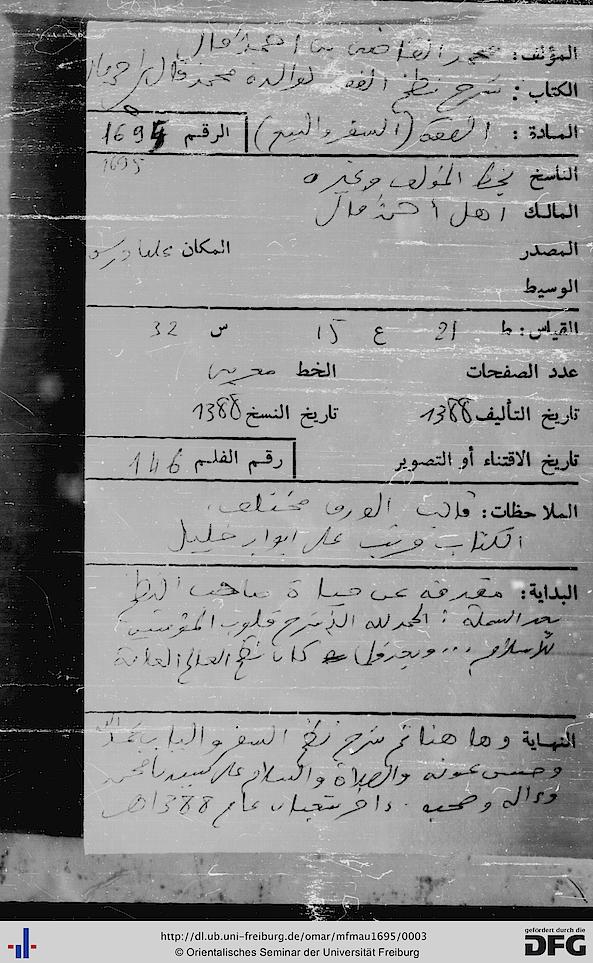 المؤلف: محمد القاضي بن احمد فال
الكتاب: شرح نظم الفقه لوالده محمد فال
المادة: الفقه (السفر والبيع) الرقم 1694
1695
الناسخ بخط المؤلف وغيره
المالك اهل أحمد فال
المصدر المكان
الوسيط
القياس: ط 21 ع 15 س 32
عدد الصفحات الخط مغربي
تاريخ التأليف 1388 تاريخ النسخ 1388
تاريخ الاقتناء أو التصوير رقم الفلم 146
الملاحظات: قالب الورق مختلف،
الكتاب مرتب على ابواب خليل
البداية: مقدمة عن حياة صاحب النظم
بعد البسملة: الحمد لله الذي شرح قلوب المؤمنين
للاسلام ... وبعد كان نظم العالم العلامة
النهاية وها هنا تم شرح نظم السفر والباب بحمد الله
وحسن عونه والصلاة والسلام على سيدنا محمد
وءاله وصحبه. ءاخر شعبان عام 1388هـ
http://dl.ub.uni-freiburg.de/omar/mfmau1695/0003
© Orientalisches Seminar der Universität Freiburg
gefördert durch die
DFG